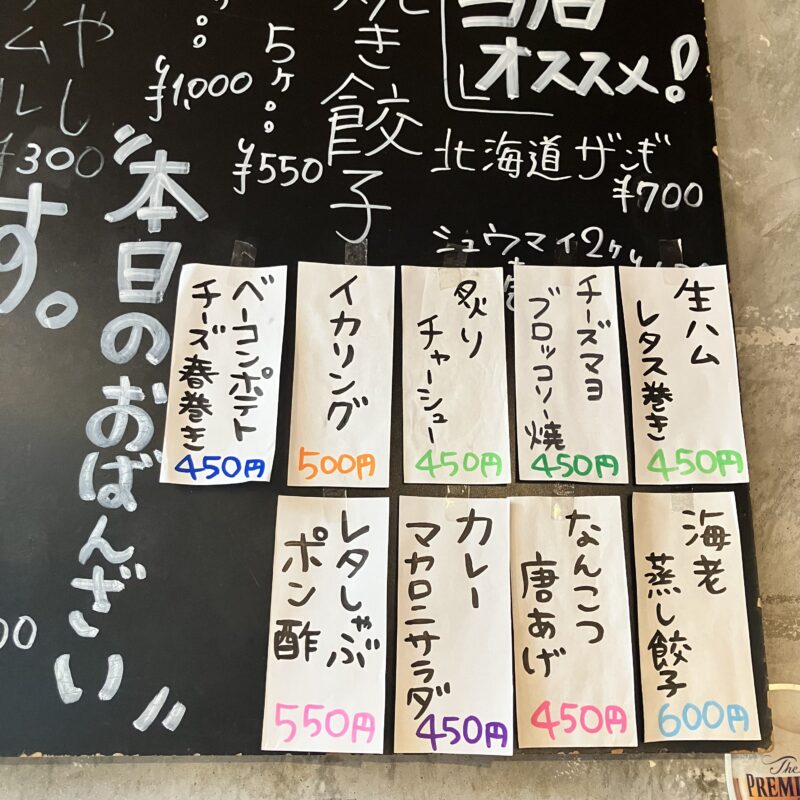 当店
オススメ!
北海道ザンギ
¥700
シュウマイ2ケ
焼き餃子
5ケ
¥550
¥1,000
¥300
す。
"本日のおばんざい"
生ハム
レタス巻き
450円
チーズマヨ
ブロッコリー焼
450円
炙り
チャーシュー
450円
イカリング
500円
ベーコンポテト
チーズ春巻き
450円
海老
蒸し餃子
600円
なんこつ
唐あげ
450円
カレー
マカロニサラダ
450円
レタしゃぶ
ポン酢
550円
The
PREMI